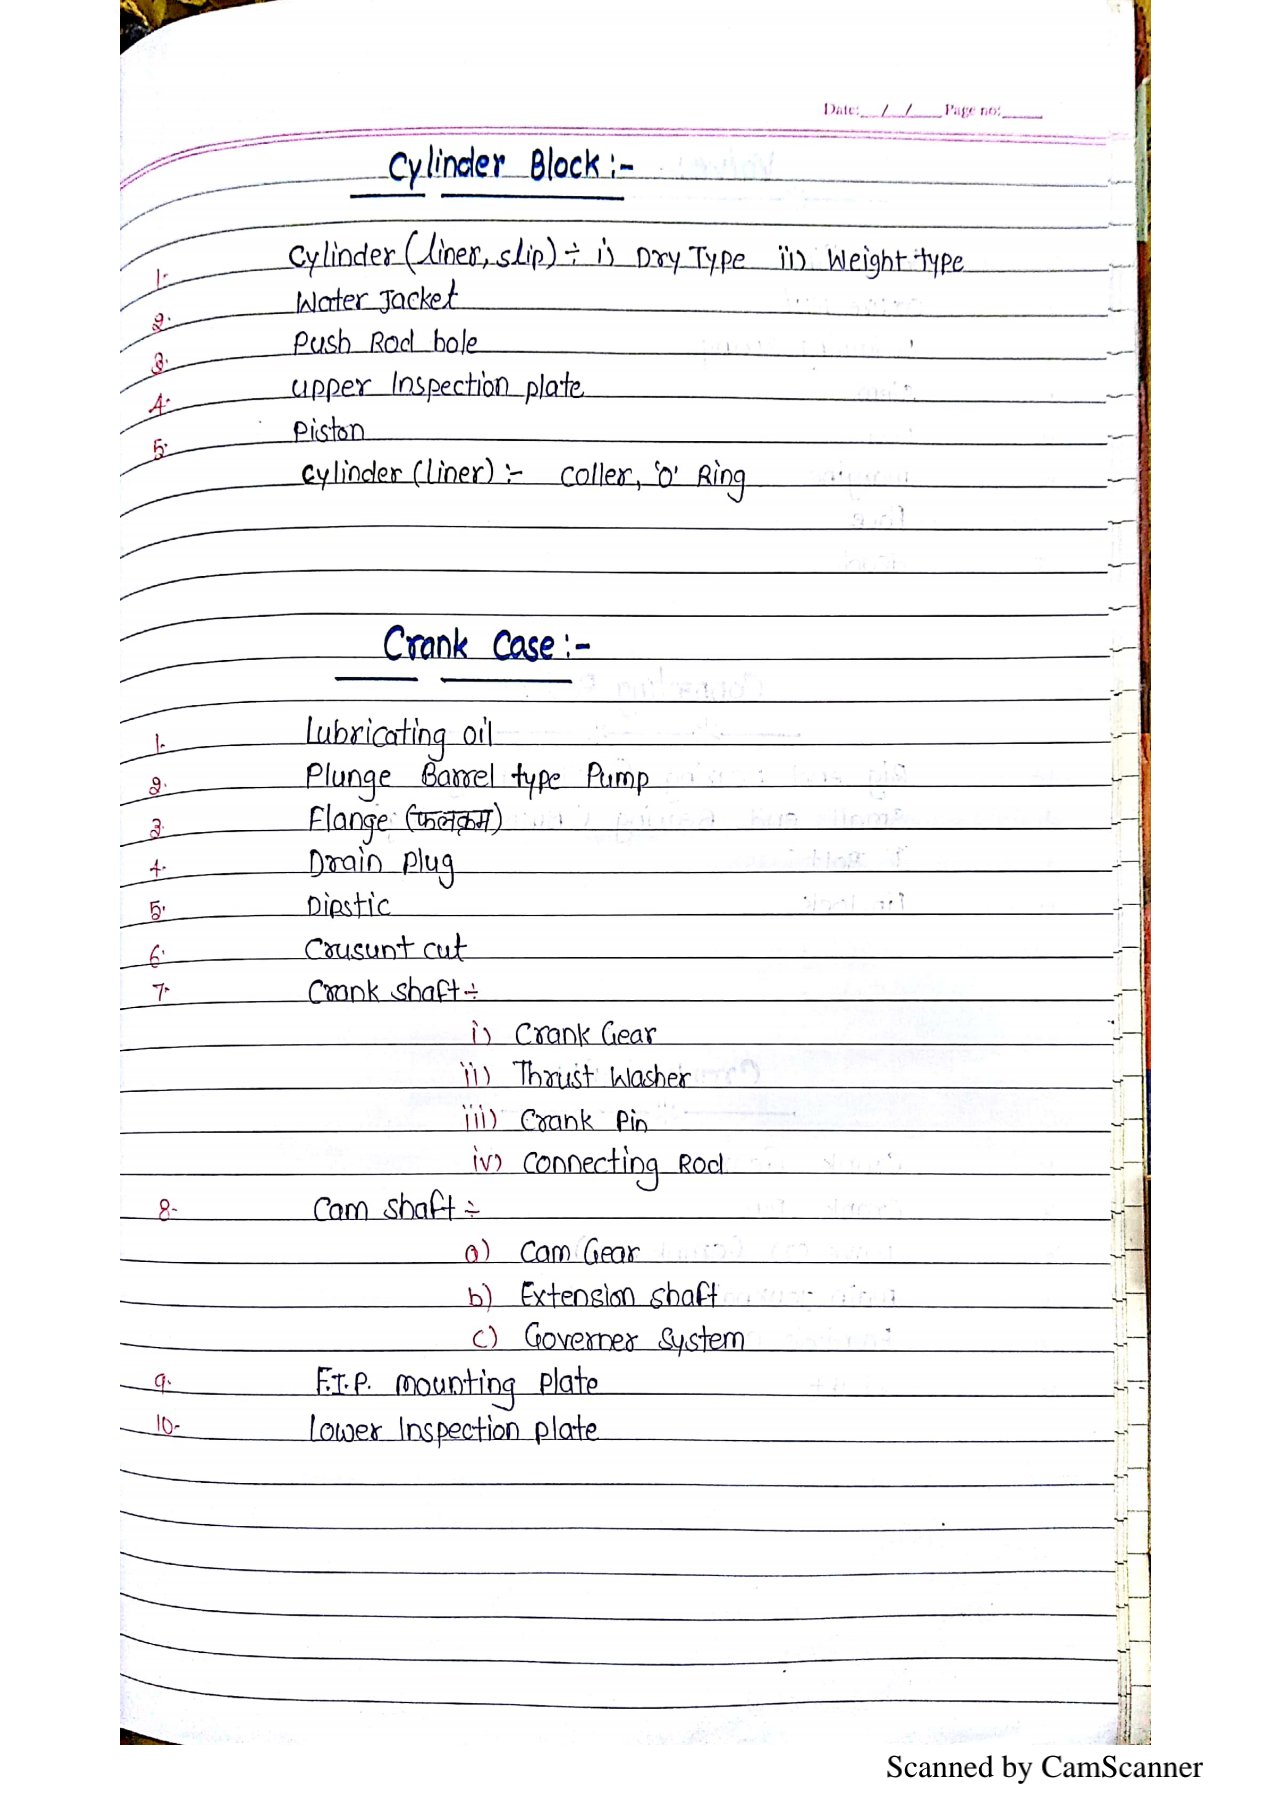 Date: / / Page no:
Cylinder Block :-
1. Cylinder (liner, slip) ÷ i) Dry Type ii) Weight type
2. Water Jacket
3. Push Rod bole
4. upper Inspection plate
5. Piston
Cylinder (liner) :- Coller, 'O' Ring
Crank Case :-
1. Lubricating oil
2. Plunge Barrel type Pump
3. Flange (फलक्रम)
4. Drain plug
5. Dipstic
6. Crusunt cut
7. Crank shaft ÷
i) Crank Gear
ii) Thrust Washer
iii) Crank Pin
iv) Connecting Rod
8. Cam shaft ÷
a) Cam Gear
b) Extension shaft
c) Governer System
9. F.I.P. mounting plate
10. lower Inspection plate
Scanned by CamScanner